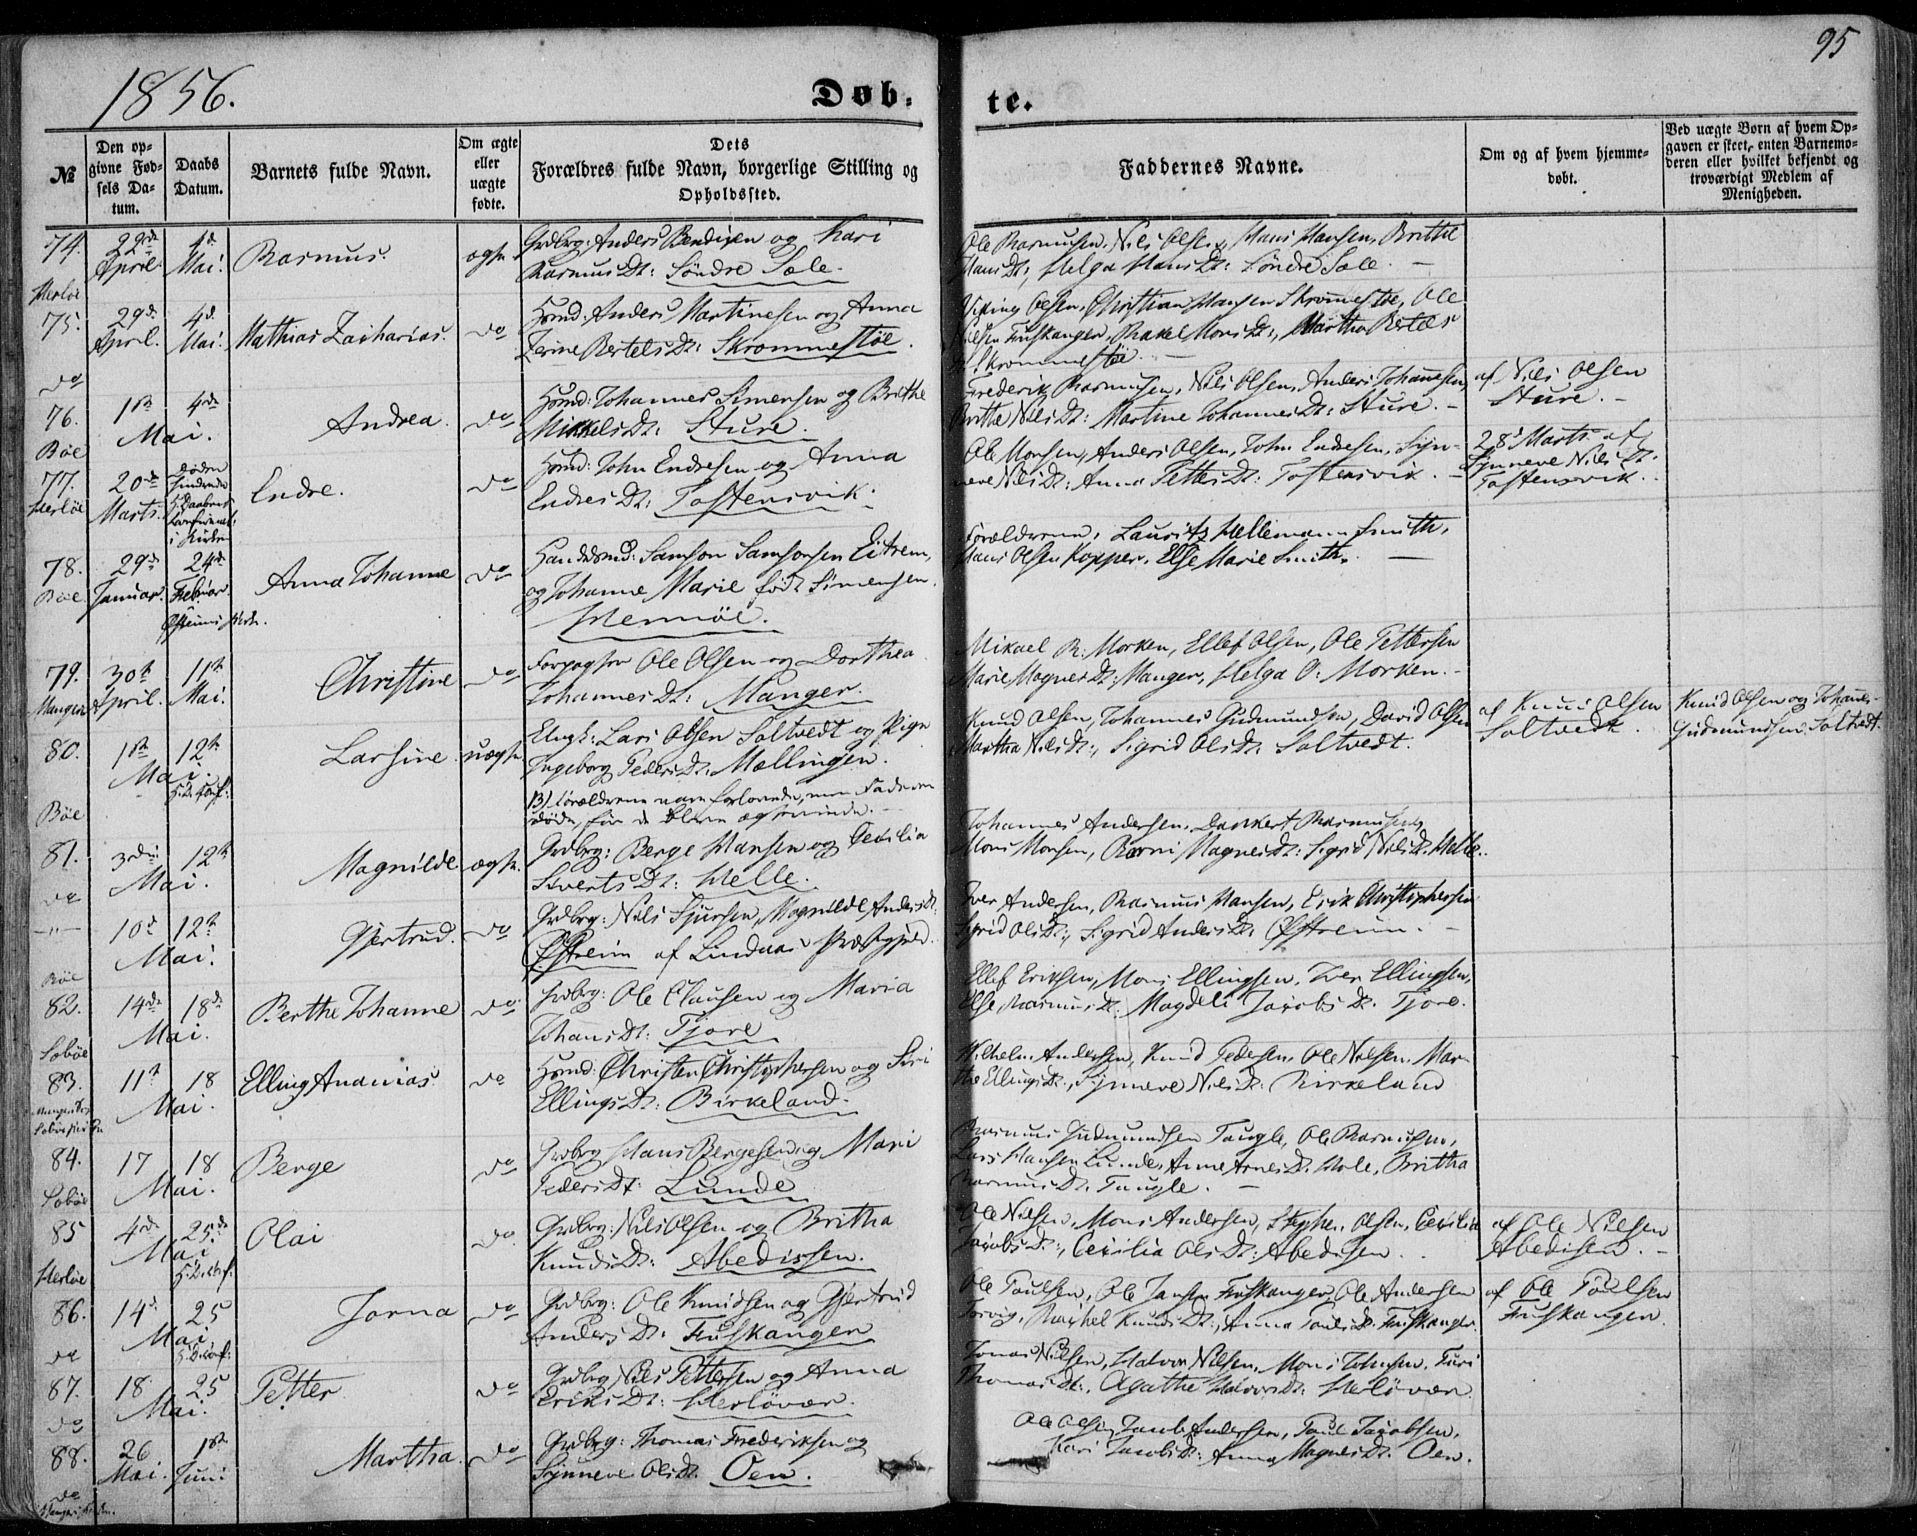 95
1856.
Døb. te.
№
Den op-
givne Fød-
sels Da-
tum.
Daabs
Datum.
Barnets fulde Navn.
Om ægte
eller
uægte
fødte.
Dets
Forældres fulde Navn, borgerlige Stilling og
Opholdssted.
Faddernes Navne.
Om og af hvem hjemme-
døbt.
Ved uægte Børn af hvem Op-
gaven er skeet, enten Barnemo-
deren eller hvilket bekjendt og
troværdigt Medlem af
Menigheden.
74. 22de April. 4d Mai. Rasmus. ægte Grdbrg: Anders Bendixen og Kari
Rasmus Dt: Söndre Sæle.
Ole Rasmusen, Nils Olsen, Hans Hansen, Brithe
Hans Dt; Helga Hans Dt: Söndre Sæle. —
Herlöe
75. 29d. April. 4d. Mai. Mathias Zacharias. do Huusmd: Anders Martinesen og Anna
Zerine Bertels Dt: Skrommestöe.
Viking Olsen, Christian Hansen Skrommestöe, Ole
Nilsen Fuskanger, Rakel Mons Dt:, Martha Bertels
Skrommestöe. —
do
76. 1ste 4de Mai. Andrea. do Huusmd: Johannes Simensen og Brithe
Mikkels Dt: Sture.
Frederik Rasmusen, Nils Olsen, Anders Johannesen,
Brithe Nils Dt: Martine Johannes Dt: Sture. —
af Nils Olsen
Sture. —
Böe
77. 20de Marts. Endre. do Huusmd: John Endresen og Anna
Endres Dt: Tostensvik.
Ole Monsen, Anders Olsen, John Endresen, Syn-
neve Nils Dt: Anna Petters Dt: Tostensvik. —
28d Marts af
Synneve Nils Dt.
Tostensvik.
Herlöe
i Kirken
78. 29de Januar. 24de Februar. Anna Johanne do Handelsmd: Samson Samsonsen Eitrem,
og Johanne Marie født Simensen.
Hernöe.
Forældrene, Lauritz Hellemann Smith,
Hans Olsen Kopper, Else Marie Smith. —
Böe
79. 30te April. 11te Mai. Christine do Forpagter Ole Olsen og Dorthea
Johannes Dt: Manger.
Mikael R: Morken, Ellef Olsen, Ole Pettersen
Marie Magnes Dt: Manger, Helga O: Morken. —
Manger
80. 1ste 12te Mai. Larsine. uægte Ungk: Lars Olsen Soltvedt og Pige
Ingeborg Peders Dt: Mællingen.
B) Forældrene vare forlovede, men Faderen
døde, før de bleve ægteviede. —
Knud Olsen, Johannes Gudmundsen, David Olsen
Martha Nils Dt:, Sigrid Ols Dt: Soltvedt.
af Knud Olsen
Soltvedt.
Knud Olsen og Johannes
Gudmundsen Soltvedt.
Böe
81. 3die 12te Mai. Magnilde ægte Grdbrg: Berge Hansen og Cecilia
Siverts Dt: Helle.
Johannes Andersen, Dankert Rasmusen,
Mons Monsen, Barni Magnes Dt: Sigrid Nils Dt: Helle.
do
— " — 10d 12te Mai. Gjertrud. do Grdbrg: Nils Sjursen, Magnilde Anders Dt:
Østreim af Lindaas Præstegjeld.
Iver Andersen, Rasmus Hansen, Erik Christophersen
Sigrid Ols Dt:, Sigrid Anders Dt: Østreim. —
Böe
82. 14de 18de Mai. Berthe Johanne do Grdbrg: Ole Clausen og Maria
Johans Dt: Tjore
Ellef Eriksen, Mons Ellingsen, Iver Ellingsen,
Else Rasmus Dt. Magdeli Jacobs Dt. Tjore.
Sæböe
83. 11te 18 Mai. Elling Ananias. do Huusmd: Christen Christophersen og Siri
Ellings Dt: Birkeland.
Wilhelm Andersen, Knud Pedersen, Ole Nilsen, Mar-
the Ellings Dt:, Synneve Nils Dt: Birkeland
84. 17 18 Mai. Berge do Grdbrg Hans Bergesen og Mari
Peders Dt: Lunde
Rasmus Gudmundsen Taugle, Ole Rasmusen,
Lars Hansen Lunde, Anne Arnes Dt. Hole, Britha
Rasmus Dt. Taugle. —
Sæböe
85 4de 25de Mai Olai do. Grdbrg: Nils Olsen og Britha
Knuds Dt: Abedissen.
Ole Nilsen, Mons Andersen, Stephen Olsen, Cecilia
Jacobs Dt:, Cecilia Ols Dt: Abedisen.
af Ole Nilsen
Abedisen. —
Herlöe
86. 14d 25 Mai Jorna do Grdbrg: Ole Knudsen og Gjertrud
Anders Dt: Fuskanger
Ole Poulsen, Ole Jansen Fuskanger, Ole Andersen
Torvig, Rachel Knuds Dt:, Anna Pouls Dt. Fuskanger.
af Ole Poulsen
Fuskangen.
do
87. 18 25 Mai. Petter do Grdbrg Nils Pettersen og Anna
Eriks Dt: Herlövær.
Jonas Nilsen, Halvor Nilsen, Mons Johnsen, Turi
Thomas Dt:, Agathe Halvors Dt: Herlövær.
do
88. 26 Mai. 1ste Juni Martha. do Grdbrg: Thomas Frederiksen og
Synneve Ols Dt: Oen.
Ole Olsen, Jacob Andersen, Poul Jacobsen,
Kari Jacobs Dt: Anna Magnes Dt. Oen.
do